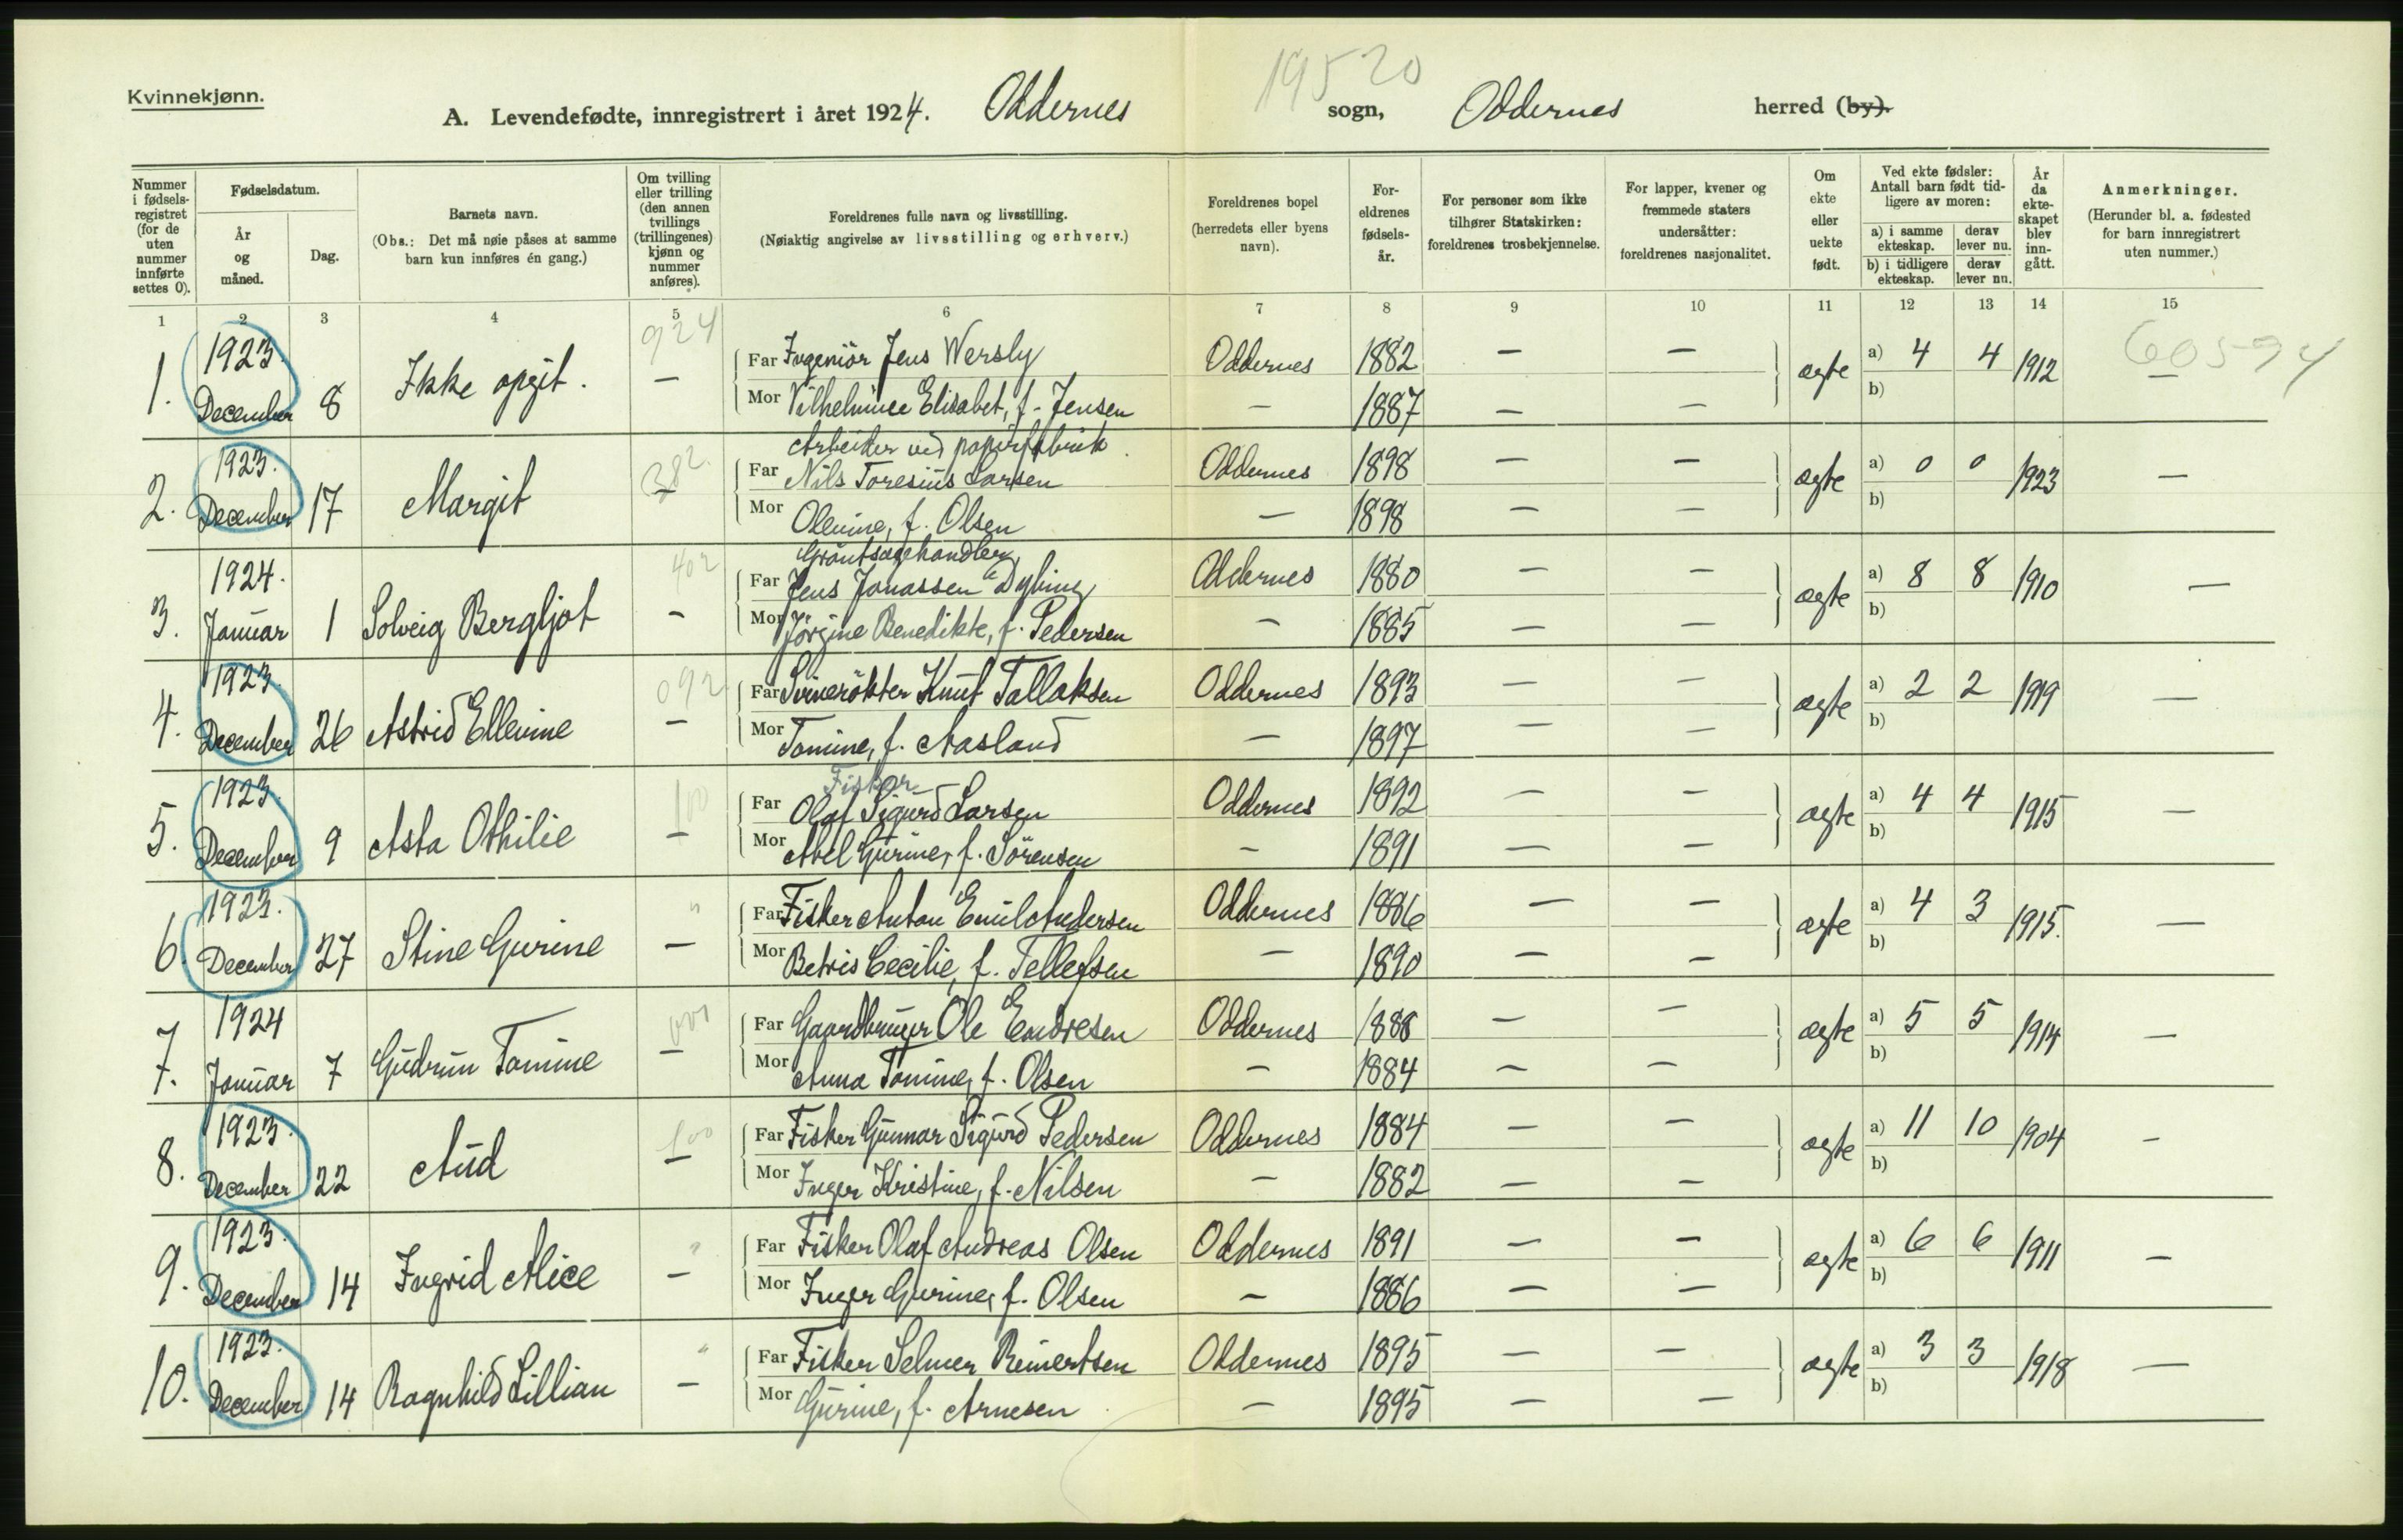 19520
Kvinnekjønn.
A. Levendefødte, innregistrert i året 1924. Oddernes sogn, Oddernes herred (by).
Nummer i fødsels-registret (for de uten nummer innførte settes 0).
Fødselsdatum.
År og måned.
Dag.
Barnets navn.
(Obs.: Det må nøie påses at samme barn kun innføres én gang.)
Om tvilling eller trilling (den annen tvillings (trillingenes) kjønn og nummer anføres).
Foreldrenes fulle navn og livsstilling.
(Nøiaktig angivelse av livsstilling og erhverv.)
Foreldrenes bopel (herredets eller byens navn).
For-eldrenes fødsels-år.
For personer som ikke tilhører Statskirken: foreldrenes trosbekjennelse.
For lapper, kvener og fremmede staters undersåtter: foreldrenes nasjonalitet.
Om ekte eller uekte født.
Ved ekte fødsler: Antall barn født tid-ligere av moren:
a) i samme ekteskap. derav lever nu.
b) i tidligere ekteskap. derav lever nu.
År da ekte-skapet blev inn-gått.
Anmerkninger.
(Herunder bl. a. fødested for barn innregistrert uten nummer.)
1 2 3 4 5 6 7 8 9 10 11 12 13 14 15
924
1. 1923. December 8 Ikke opgit. —
Far Ingeniör Jens Wersly Oddernes 1882 — — ægte a) 4 4 1912 — 60594
Mor Vilhelmine Elisabet, f. Jensen — 1887 — — b)
382.
Arbeider ved papirfabrik.
2. 1923. December 17 Margit —
Far Nils Toresius Larsen Oddernes 1898 — — ægte a) 0 0 1923 —
Mor Olenine, f. Olsen — 1898 — — b)
402
Gröntsagshandler
3. 1924. Januar 1 Solveig Bergljot —
Far Jens Jonassen Dybing Oddernes 1880 — — ægte a) 8 8 1910 —
Mor Jörgine Benedikte, f. Pedersen — 1885 — — b)
092
4. 1923. December 26 Astrid Ellenine —
Far Svinerökter Knut Tallaksen Oddernes 1893 — — ægte a) 2 2 1919 —
Mor Tomine, f. Aasland — 1897 — — b)
100
Fisker
5. 1923. December 9 Asta Othilie —
Far Olaf Sigurd Larsen Oddernes 1892 — — ægte a) 4 4 1915 —
Mor Abel Gurine, f. Sörensen — 1891 — — b)
"
6. 1923. December 27 Stine Gurine —
Far Fisker Anton Emil Andersen Oddernes 1886 — — ægte a) 4 3 1915. —
Mor Betris Cecilie, f. Tellefsen — 1890 — — b)
7. 1924 Januar 7 Gudrun Tomine —
Far Gaardbruger Ole Endresen Oddernes 1888 — — ægte a) 5 5 1914 —
Mor Anna Tomine, f. Olsen — 1884 — — b)
100
8. 1923. December 22 Aud —
Far Fisker Gunnar Sigurd Pedersen Oddernes 1884 — — ægte a) 11 10 1904 —
Mor Inger Kristine, f. Nilsen — 1882 — — b)
"
9. 1923. December 14 Ingrid Alice —
Far Fisker Olaf Andreas Olsen Oddernes 1891 — — ægte a) 6 6 1911 —
Mor Inger Gurine, f. Olsen — 1886 — — b)
"
10. 1923. December 14 Ragnhild Lillian —
Far Fisker Selmer Reinertsen Oddernes 1895 — — ægte a) 3 3 1918 —
Mor Gurine, f. Arnesen — 1895 — — b)